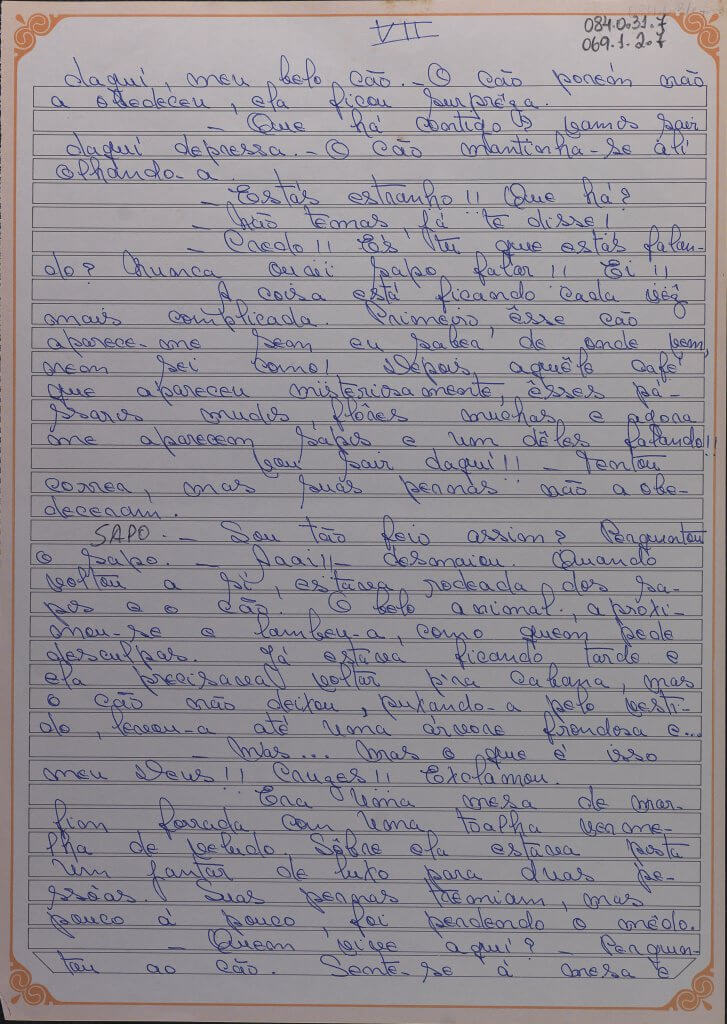 VII
084.0.31.7
069.1.2.7
daqui, meu belo cão. - O cão porém não
a obedeceu, ela ficou surprêza.
- Que há contigo? vamos sair
daqui depressa. - O cão mantinha-se ali
olhando-a.
- Estás estranho!! Que há?
- Não temas, já te disse!
- Credo!! És tu que estás falan-
do? Nunca ouvi sapo falar!! Ei!!
A coisa está ficando cada vêz
mais complicada. Primeiro, êsse cão
aparece-me sem eu saber de onde vem,
nem sei como! Depois, aquêle café
que apareceu misteriosamente, êsses pá-
ssaros mudos, flôres muchas, e agora
me aparecem sapos e um dêles falando!!
Vou sair daqui!! - Tentou
correr, mas suas pernas não a obe-
deceram.
SAPO. - Sou tão feio assim? Perguntou
o sapo. - Aaai!! - desmaiou. Quando
voltou a si, estava rodeada dos sa-
pos e o cão. O belo animal, aproxi-
mou-se e lambeu-a, como quem pede
desculpas. Já estava ficando tarde e
ela precisava voltar p'ra cabana, mas
o cão não deixou, puxando-a pelo vesti-
do, levou-a até uma árvore frondosa e...
- Mas... mas o que é isso
meu Deus!! Cruzes!! Exclamou.
Era uma mesa de mar-
fim forrada com uma toalha verme-
lha de veludo. Sôbre ela estava posta
um jantar de luxo para duas pe-
ssôas. Suas pernas tremiam, mas
pouco á pouco, foi perdendo o mêdo.
- Quem vive aqui? - Pergun-
tou ao cão. Sente-se á mesa e